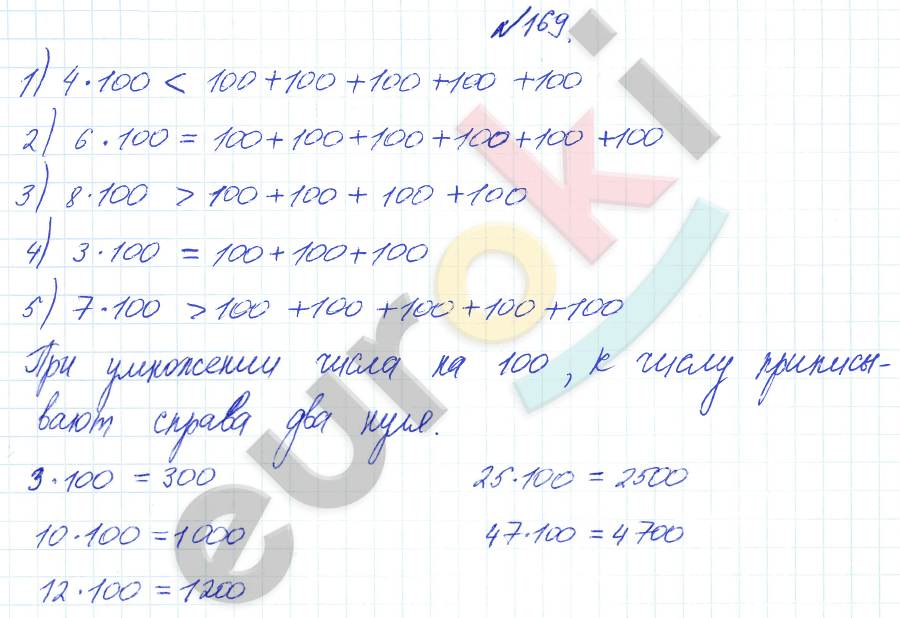 №169.
1) 4·100 < 100+100+100+100+100
2) 6·100 = 100+100+100+100+100+100
3) 8·100 > 100+100+100+100
4) 3·100 = 100+100+100
5) 7·100 > 100+100+100+100+100
При умножении числа на 100, к числу приписы-
вают справа два нуля.
3·100 = 300
25·100 = 2500
10·100 = 1000
47·100 = 4700
12·100 = 1200
euroki